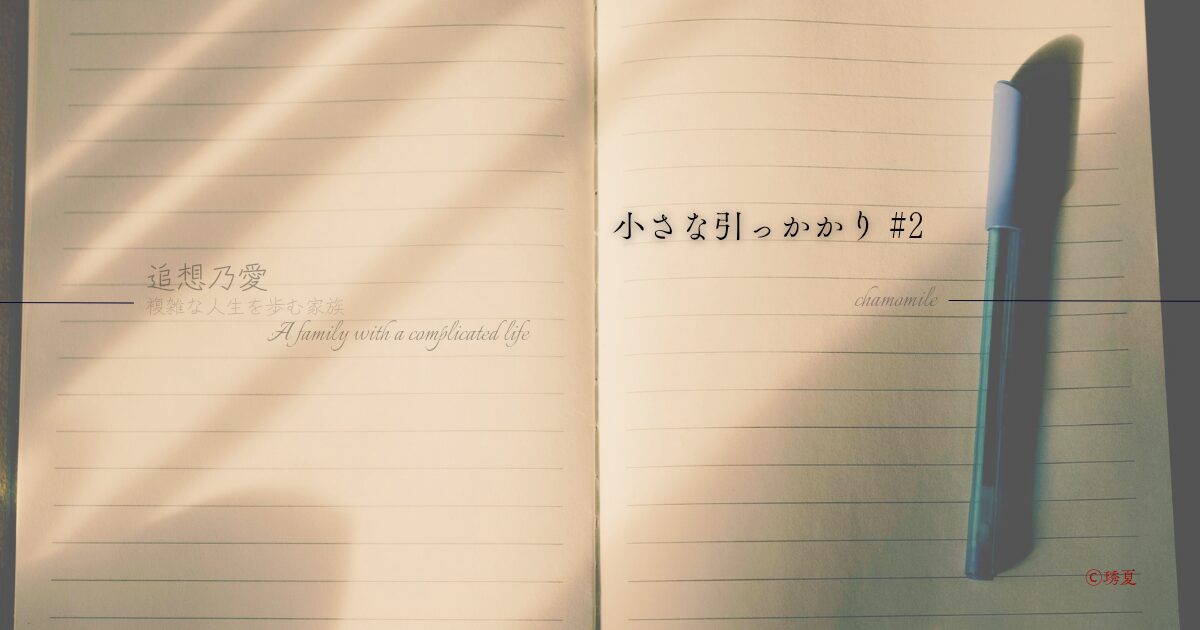 追想乃愛
複雑な人生を歩む家族
A family with a complicated life
小さな引っかかり #2
chamomile
©琇夏